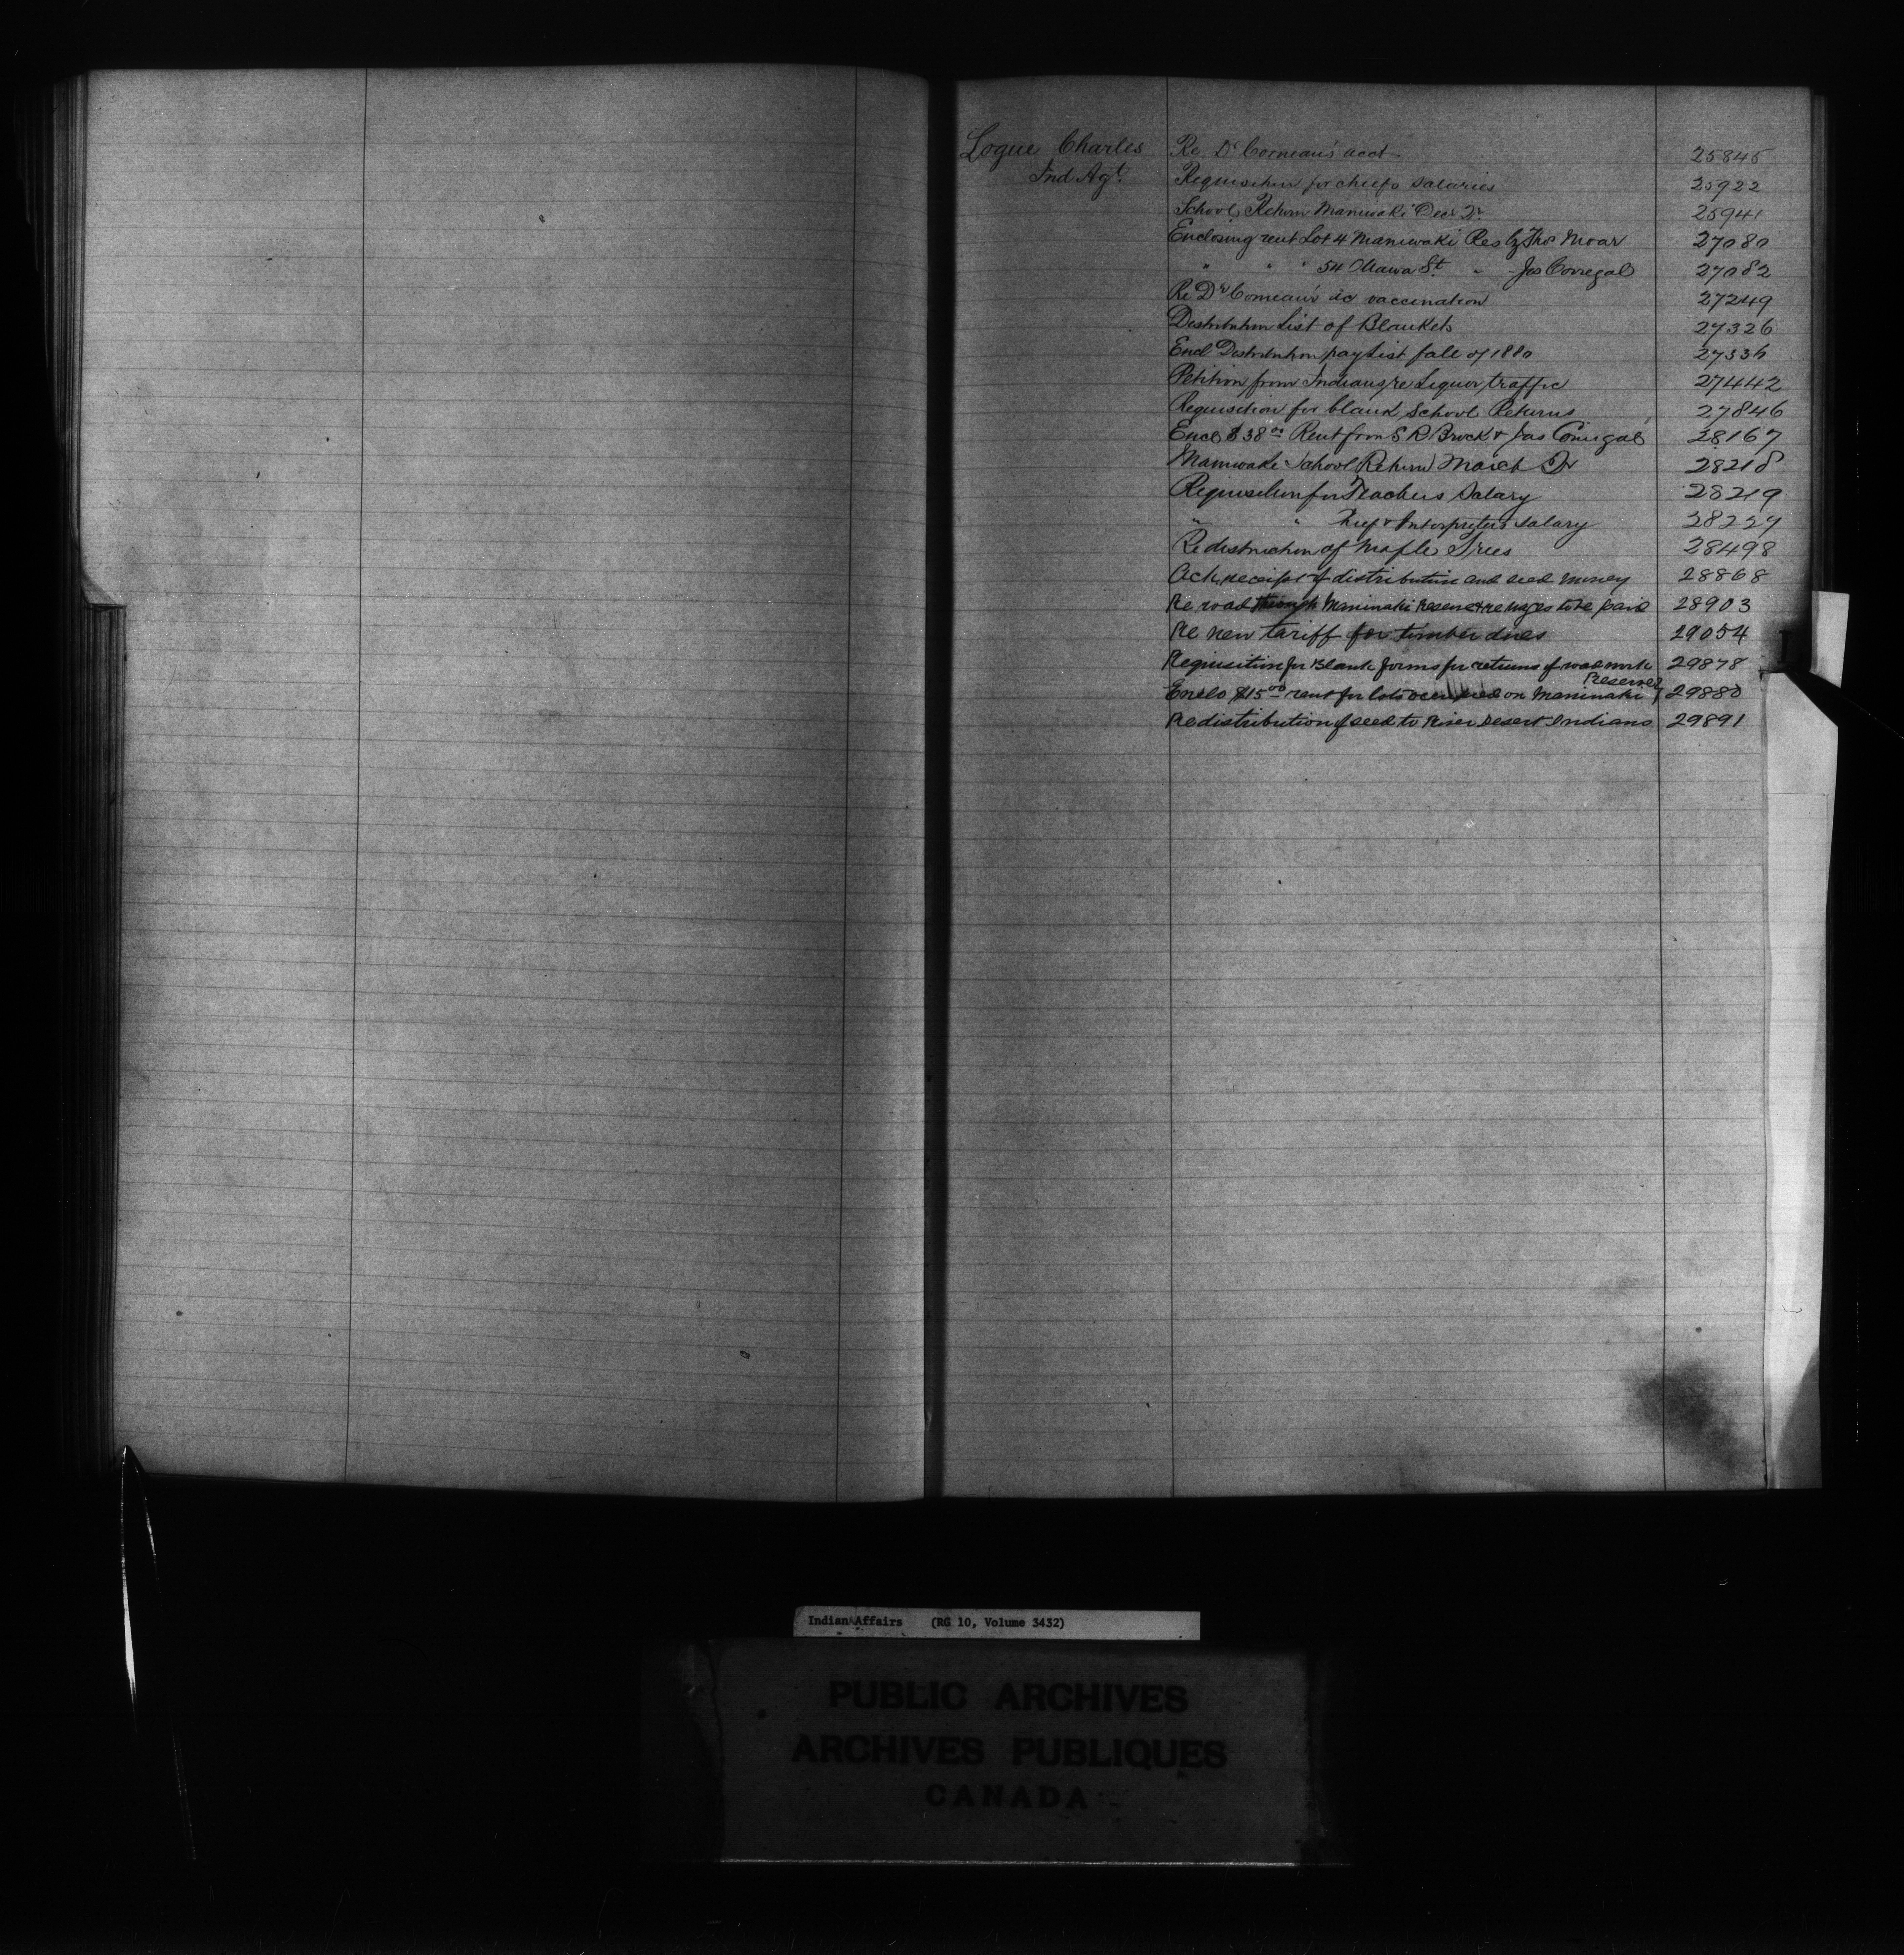 Logue Charles Re Dr Comeau's acct 25845
Ind Agt. Requisition for chiefs salaries 25922
School Return Maniwaki Decr Qr. 25941
Enclosing rent Lot 4 Maniwaki Res by Thos Moar 27080
" " " 54 Ottawa St. " Jas Corregal 27082
Re Dr Comeau's a/c vaccination 27249
Distribution List of Blankets 27326
Encl Distribution pay List fall of 1880 27336
Petition from Indians re Liquor traffic 27442
Requisition for blank School Returns 27846
Enclo $38.00 Rent from S R Brock & Jas Corregal 28167
Maniwaki School Return March Qr 28218
Requisition for Teachers Salary 28219
" " Chief & Interpreters salary 28227
Re destruction of Maple Trees 28498
Ack receipt of distribution and seed money 28868
Re road through Maniwaki Reserve & re wages to be paid 28903
Re new tariff for timber dues 29054
Requisition for Blank forms for returns of road work 29878
Enclo $15.00 rent for lots occupied on Maniwaki Reserve 29880
Re distribution of seed to River Desert Indians 29891
Indian Affairs (RG 10, Volume 3432)
PUBLIC ARCHIVES
ARCHIVES PUBLIQUES
CANADA